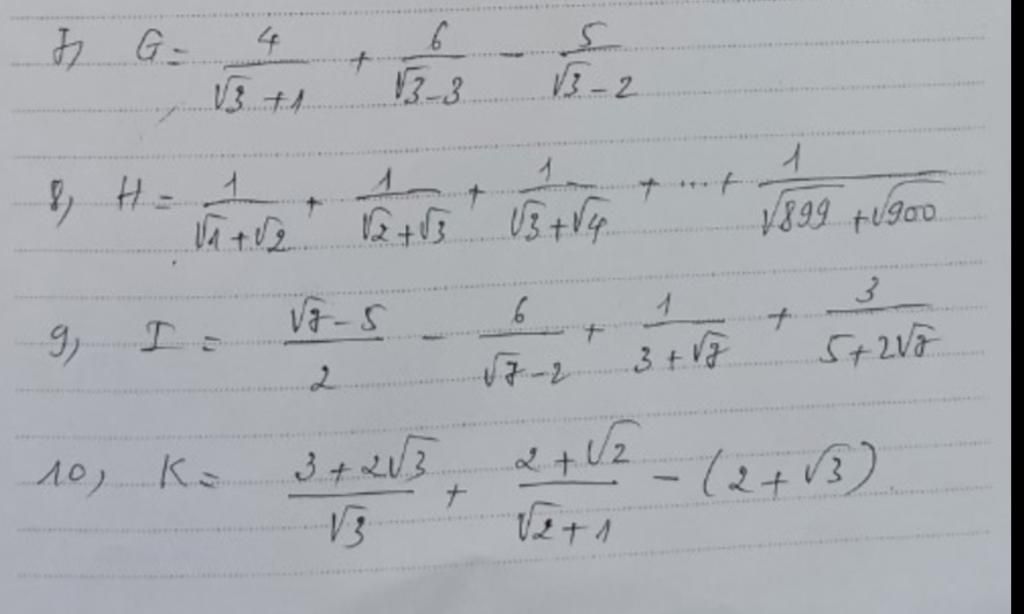 7, G = 4/(√3 + 1) + 6/(√3 - 3) - 5/(√3 - 2)
8, H = 1/(√1 + √2) + 1/(√2 + √3) + 1/(√3 + √4) + ... + 1/(√899 + √900)
9, I = (√7 - 5)/2 - 6/(√7 - 2) + 1/(3 + √7) + 3/(5 + 2√7)
10, K = (3 + 2√3)/√3 + (2 + √2)/(√2 + 1) - (2 + √3)